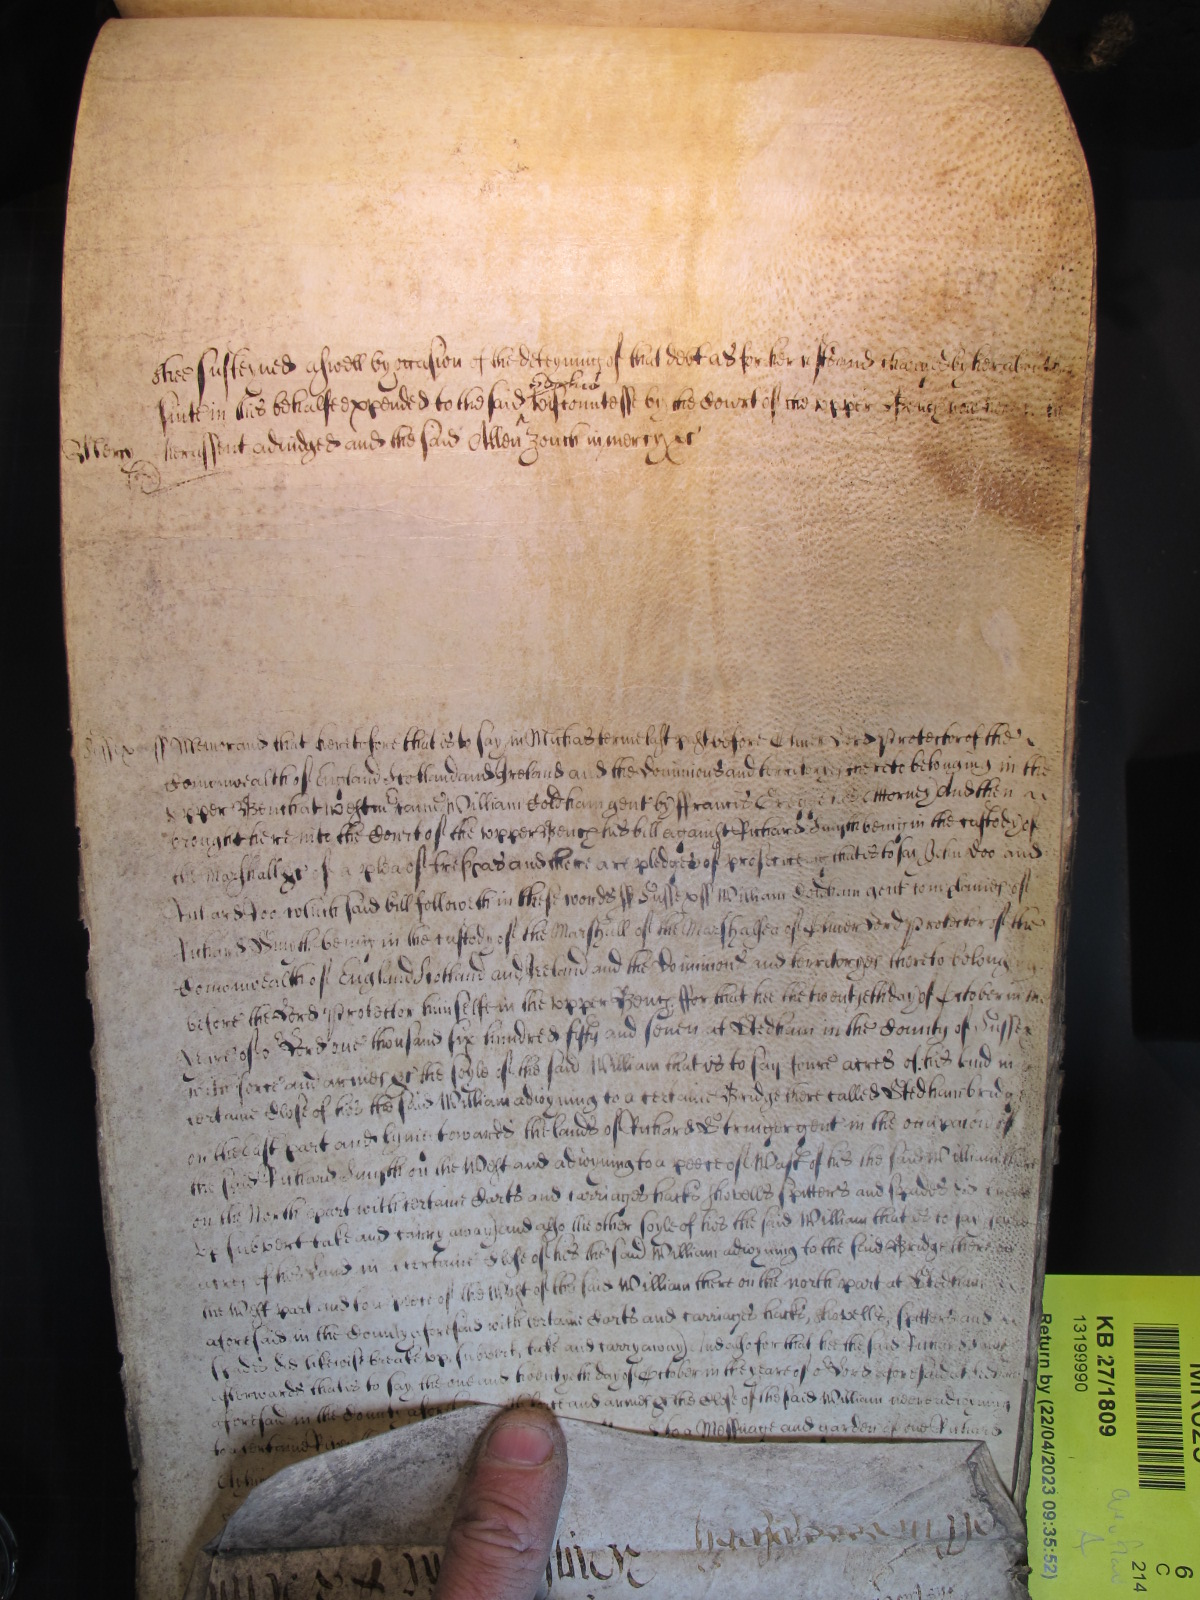 shee susteyned aswell by occasion of the deteyning of that debt as for her and charges by her about her
suite in this behalfe expended to the said Viscountesse by the Court of the upper Bench now here
Mercy her assent adiudged and the said Allen Zouch in mercy &c
Sussex ss Memorand that heretofore that is to say in Michas terme last past before Oliver Lord Protector of the
Comonwealth of England Scotland and Ireland and the Dominions and territoryes thereto belonging in the
upper Bench at Westm came William Coldham gent by Francis his Attorney And then
brought here into the Court of the upper Bench his bill against Richard Smyth being in the custody of
the Marshall &c of a plea of trespas and there are pledges of prosecuting that is to say John Doo and
Richard Roo which said bill followeth in these words ss Sussex ss William Coldham gent complaines of
Richard Smyth being in the custody of the Marshall of the Marshalsea of Oliver Lord Protector of the
Comonwealth of England Scotland and Ireland and the Dominions and territoryes thereto belonging
before the Lord Protector himselfe in the upper Bench ffor that hee the twentieth day of October in the
yeare of or Lord one thousand six hundred fifty and seven at Stedham in the County of Sussex
with force and armes &c the soyle of the said William that is to say foure acres of his land in
certaine Close of his the said William adioyning to a certaine Bridge there called Stedham bridge
on the East part and lying towards the lands of Richard Stringer gent in the occupacon of
the said Richard Smyth on the West and adioyning to a peece of Wast of his the said William there
on the North part with certaine Carts and carriages hacks shovells spitters and spades did breake
up subvert take and carry away and also the other soyle of his the said William that is to say
acres of his land in certaine Close of his the said William adioyning to the said Bridge there on
the West part and to a peece of the Wast of the said William there on the north part at Stedham
aforesaid in the County aforesaid with certaine Carts and carriages hacks, shovells, spitters and
spades did likewise breake up, subvert, take and carry away And also for that hee the said Richard
afterwards that is to say the one and twentyth day of October in the yeare of or Lord aforesaid at Stedham
aforesaid in the County force and armes &c the Close of the said William neere adioyning
to a certaine to a Messuage and garden of one Richard
KB 27/1809
13199990
Return by (22/04/2023 09:35:52)
6
C
214